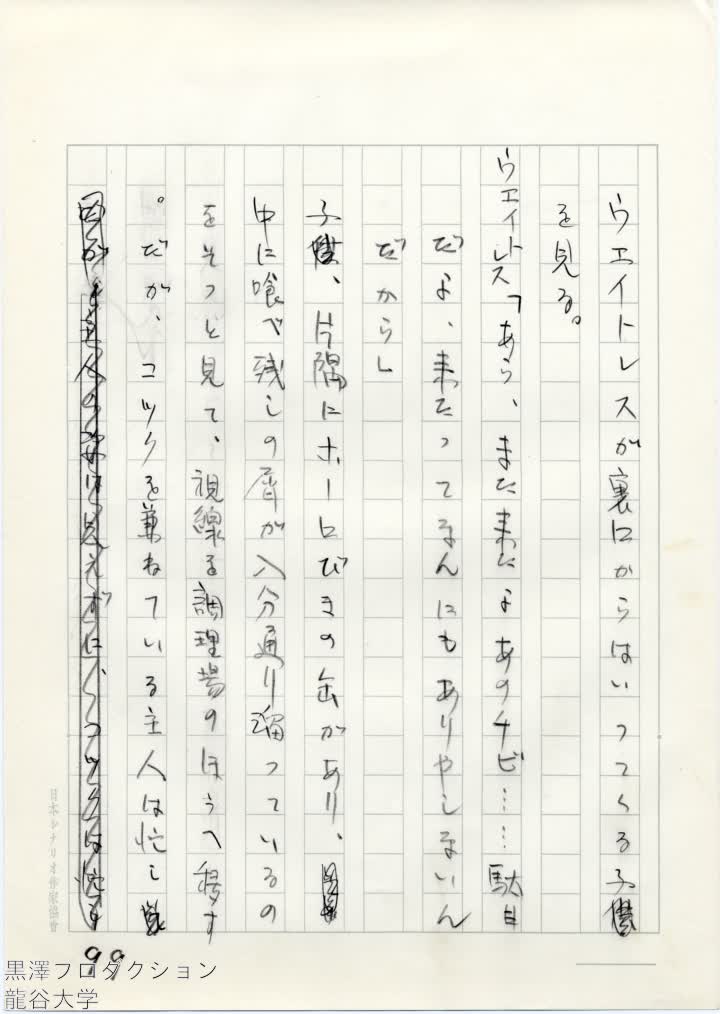 ウエイトレスが裏口からはいつてくる子供
を見る。
ウエイトレス「あら、また来たよあのチビ……駄目
だよ、来たつてなんにもありやしないん
だから」
子供、片隅にホーローびきの缶があり、
中に喰べ残しの屑が八分通り溜つているの
をそつと見て、視線を調理場のほうへ移す
。だが、コツクを兼ねている主人は忙し
日本シナリオ作家協會
99
黒澤プロダクション
龍谷大学